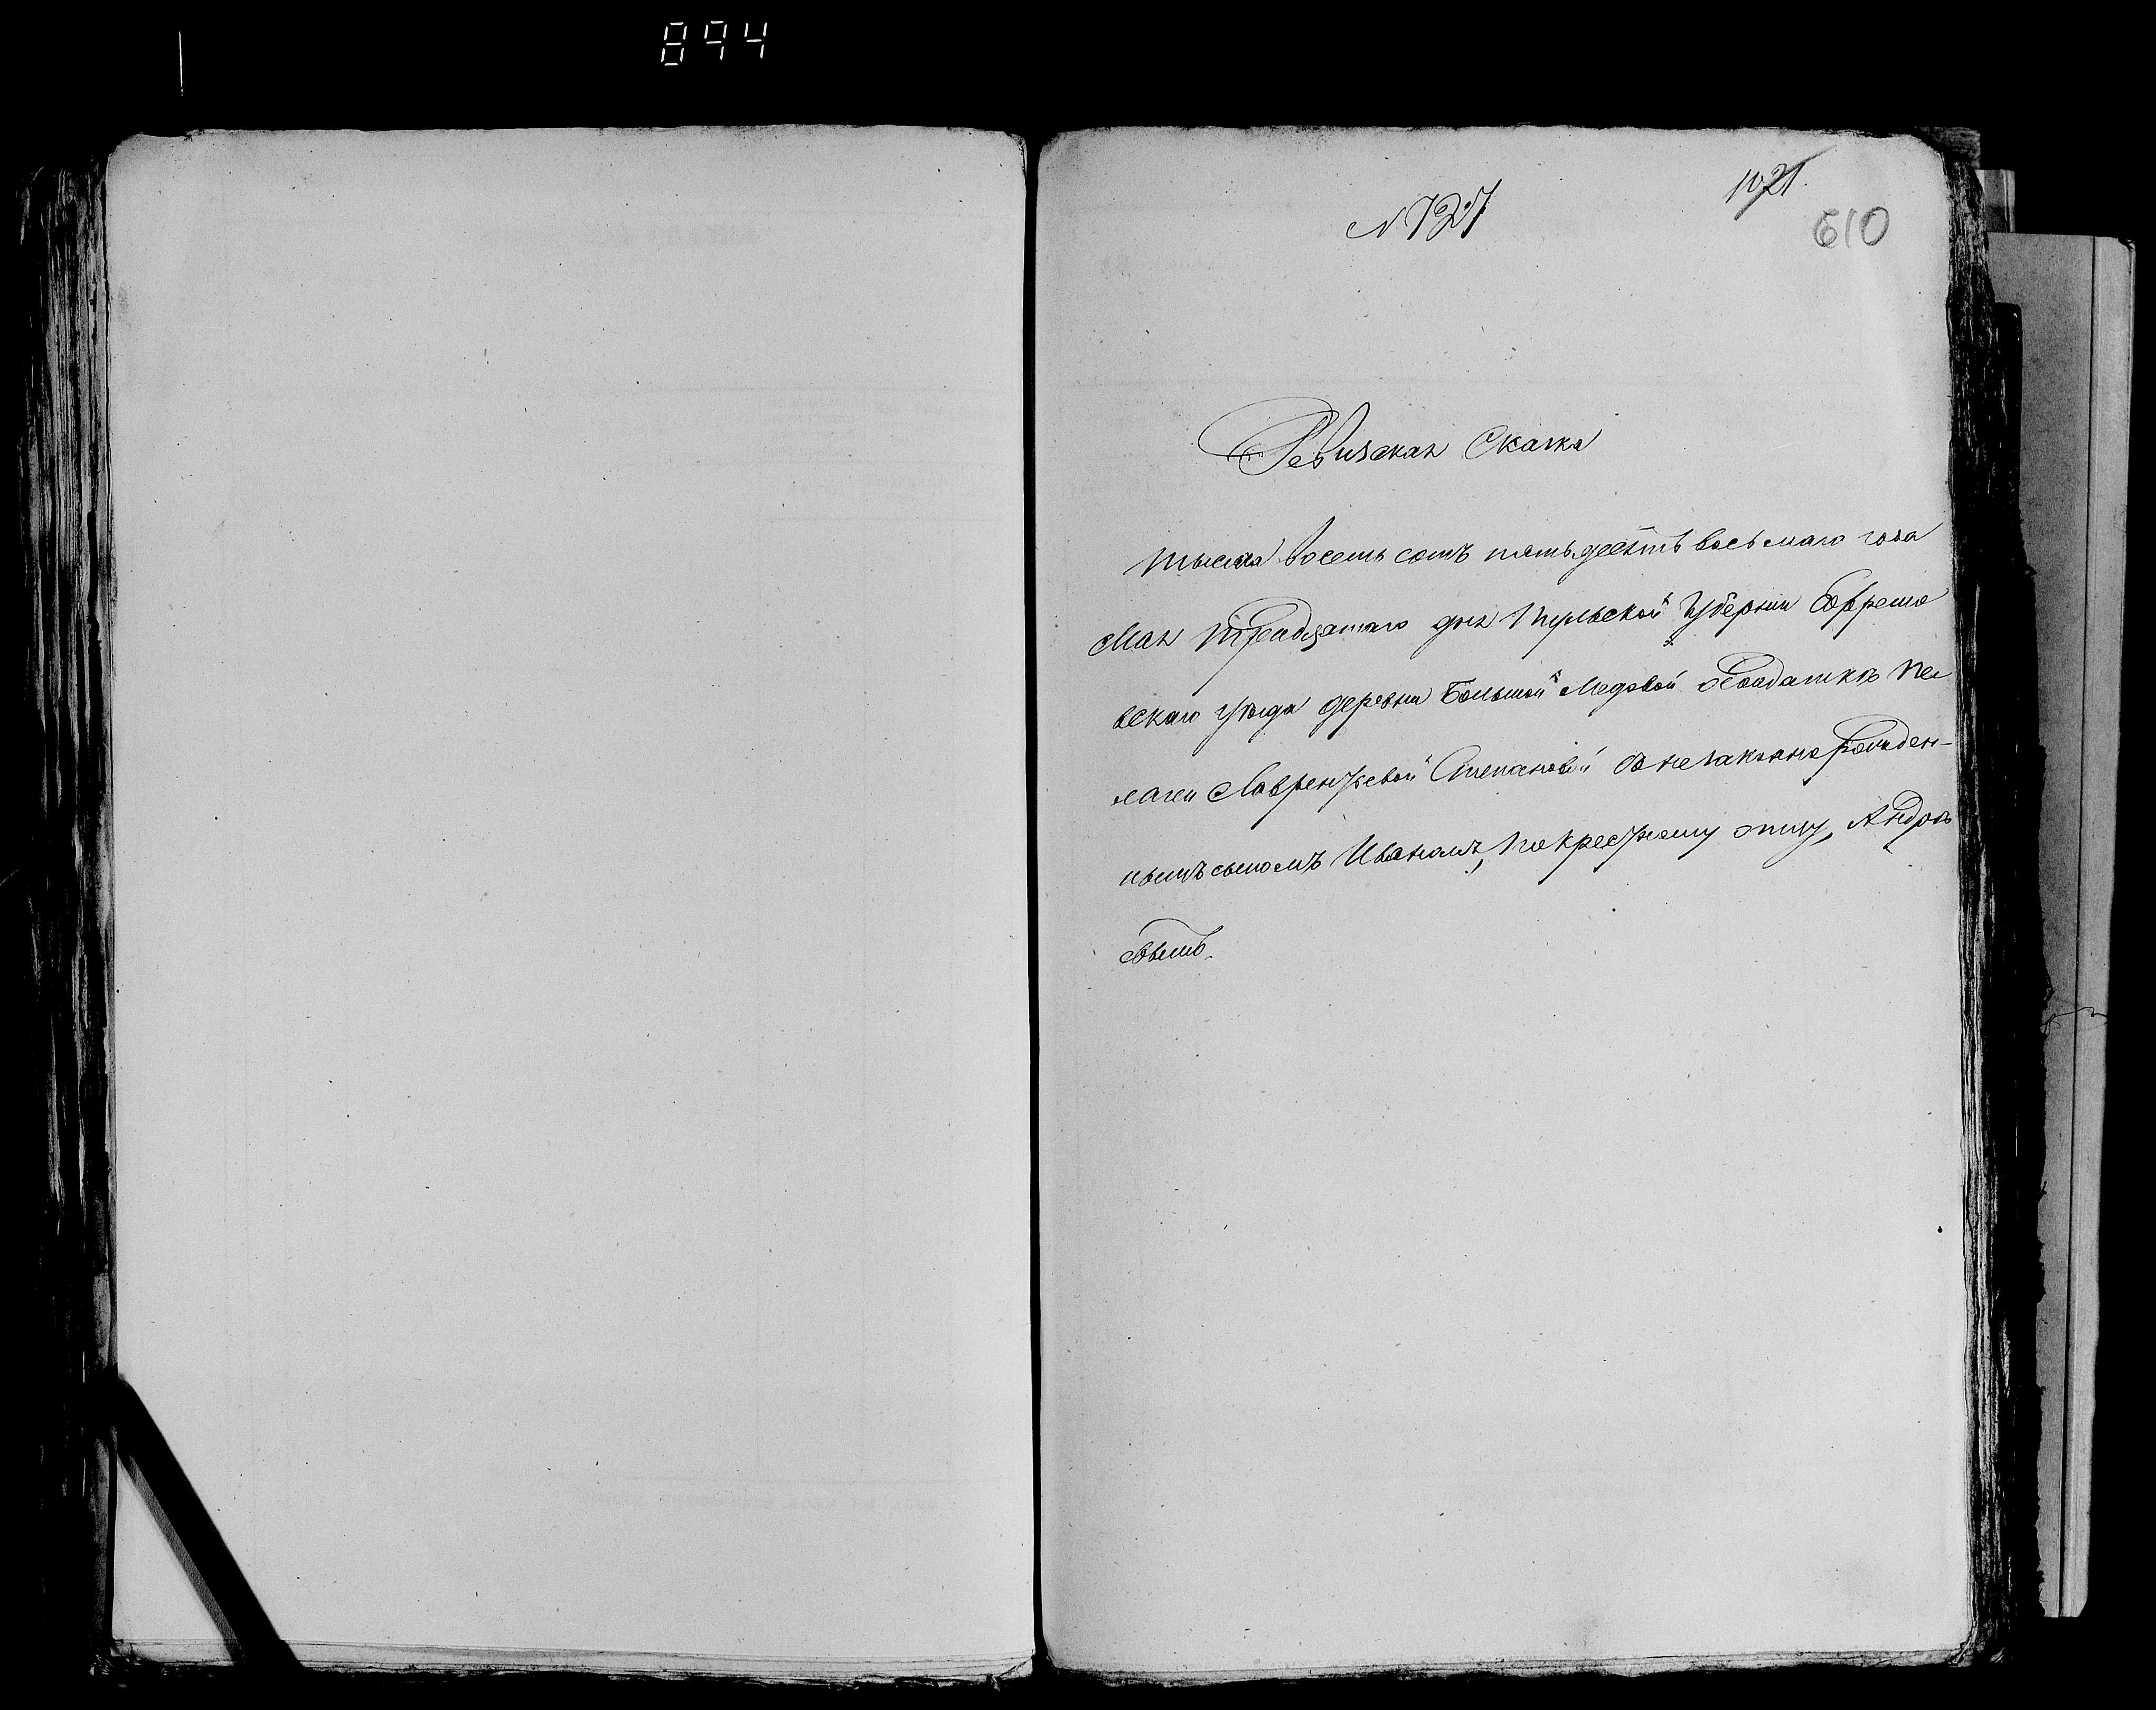 894
1021.
610
N 727
Ревизская Сказка
тысяча восемь сотъ пятьдесятъ восьмаго года
Мая Тридцатаго дня Тульской Губерніи Ефремо
вскаго уѣзда деревни Большой Медовой Солдаткѣ Пе
лагеи Лаврентьевой Степановой съ незаконнорожден-
нымъ сыномъ Иваномъ, по крестному отцу, Андрѣ
евымъ.